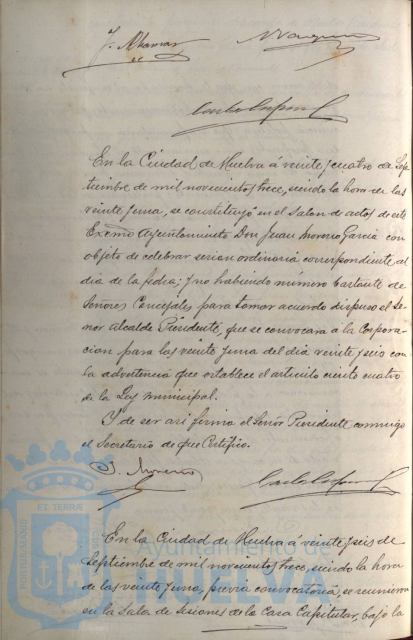 J. Vazquez
En la Ciudad de Huelva á veinte y cuatro de Sep-
tiembre de mil novecientos trece, siendo la hora de las
veinte y una, se constituyó en el Salon de actos de este
Excmo Ayuntamiento Don Juan Moreno Garcia con
objeto de celebrar sesion ordinaria correspondiente al
dia de la fecha; y no habiendo número bastante de
Señores Concejales para tomar acuerdo dispuso el Se-
ñor Alcalde Presidente, que se convocara a la Corpora-
cion para las veinte y una del dia veinte y seis con
la advertencia que establece el articulo ciento cuatro
de la Ley municipal.
Y de ser asi firma el Señor Presidente conmigo
el Secretario de que Certifico.
J. Moreno
En la Ciudad de Huelva á veinte y seis de
Septiembre de mil novecientos trece, siendo la hora
de las veinte y una, previa convocatoria, se reunieron
en la Sala de Sesiones de la Casa Capitular, bajo la
ET TERRÆ
Ayuntamiento de
HUELVA